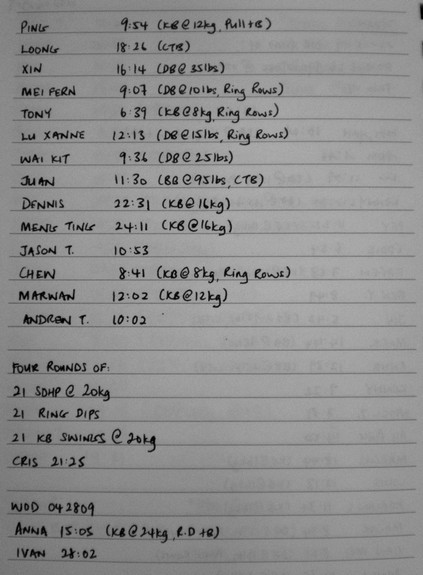 PING 9:54 (KB@12kg, Pull+B)
LOONG 18:26 (CTB)
XIN 16:14 (DB@35lbs)
MEI FERN 9:07 (DB@10lbs, Ring Rows)
TONY 6:39 (KB@8kg, Ring Rows)
LU XANNE 12:13 (DB@15lbs, Ring Rows)
WAI KIT 9:36 (DB@25lbs)
JUAN 11:30 (BB@95lbs, CTB)
DENNIS 22:31 (KB@16kg)
MENG TING 24:11 (KB@16kg)
JASON T. 10:53
CHEW 8:41 (KB@8kg, Ring Rows)
MARWAN 12:02 (KB@12kg)
ANDREW T. 10:02
FOUR ROUNDS OF:
21 SDHP @ 20kg
21 RING DIPS
21 KB SWINGS @ 20kg
CRIS 21:25
WOD 042809
ANNA 15:05 (KB@24kg, R.D +B)
IVAN 28:02